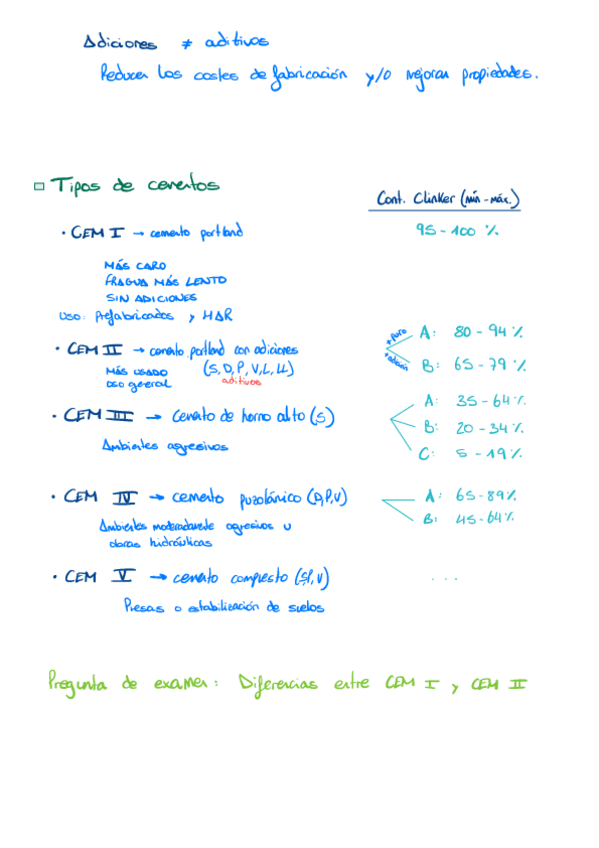 Adiciones ≠ aditivos
Reducen los costes de fabricación y/o mejoran propiedades.
Tipos de cementos
Cont. Clinker (mín - máx.)
• CEM I → cemento portland 95 - 100 %
MÁS CARO
FRAGUA MÁS LENTO
SIN ADICIONES
USO: Prefabricados y HAR
+ puro A: 80 - 94 %
• CEM II → cemento portland con adiciones
+ adición B: 65 - 79 %
MÁS USADO (S, D, P, V, L, LL)
uso general aditivos
A: 35 - 64 %
• CEM III → cemento de horno alto (S) B: 20 - 34 %
Ambientes agresivos C: 5 - 19 %
• CEM IV → cemento puzolánico (D, P, V) A: 65 - 89 %
B: 45 - 64 %
Ambientes moderadamente agresivos u
obras hidráulicas
• CEM V → cemento compuesto (S, P, V) ...
Presas o estabilización de suelos
Pregunta de examen: Diferencias entre CEM I y CEM II